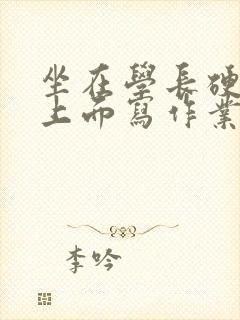 坐在學長硬
上面寫作業
李吟